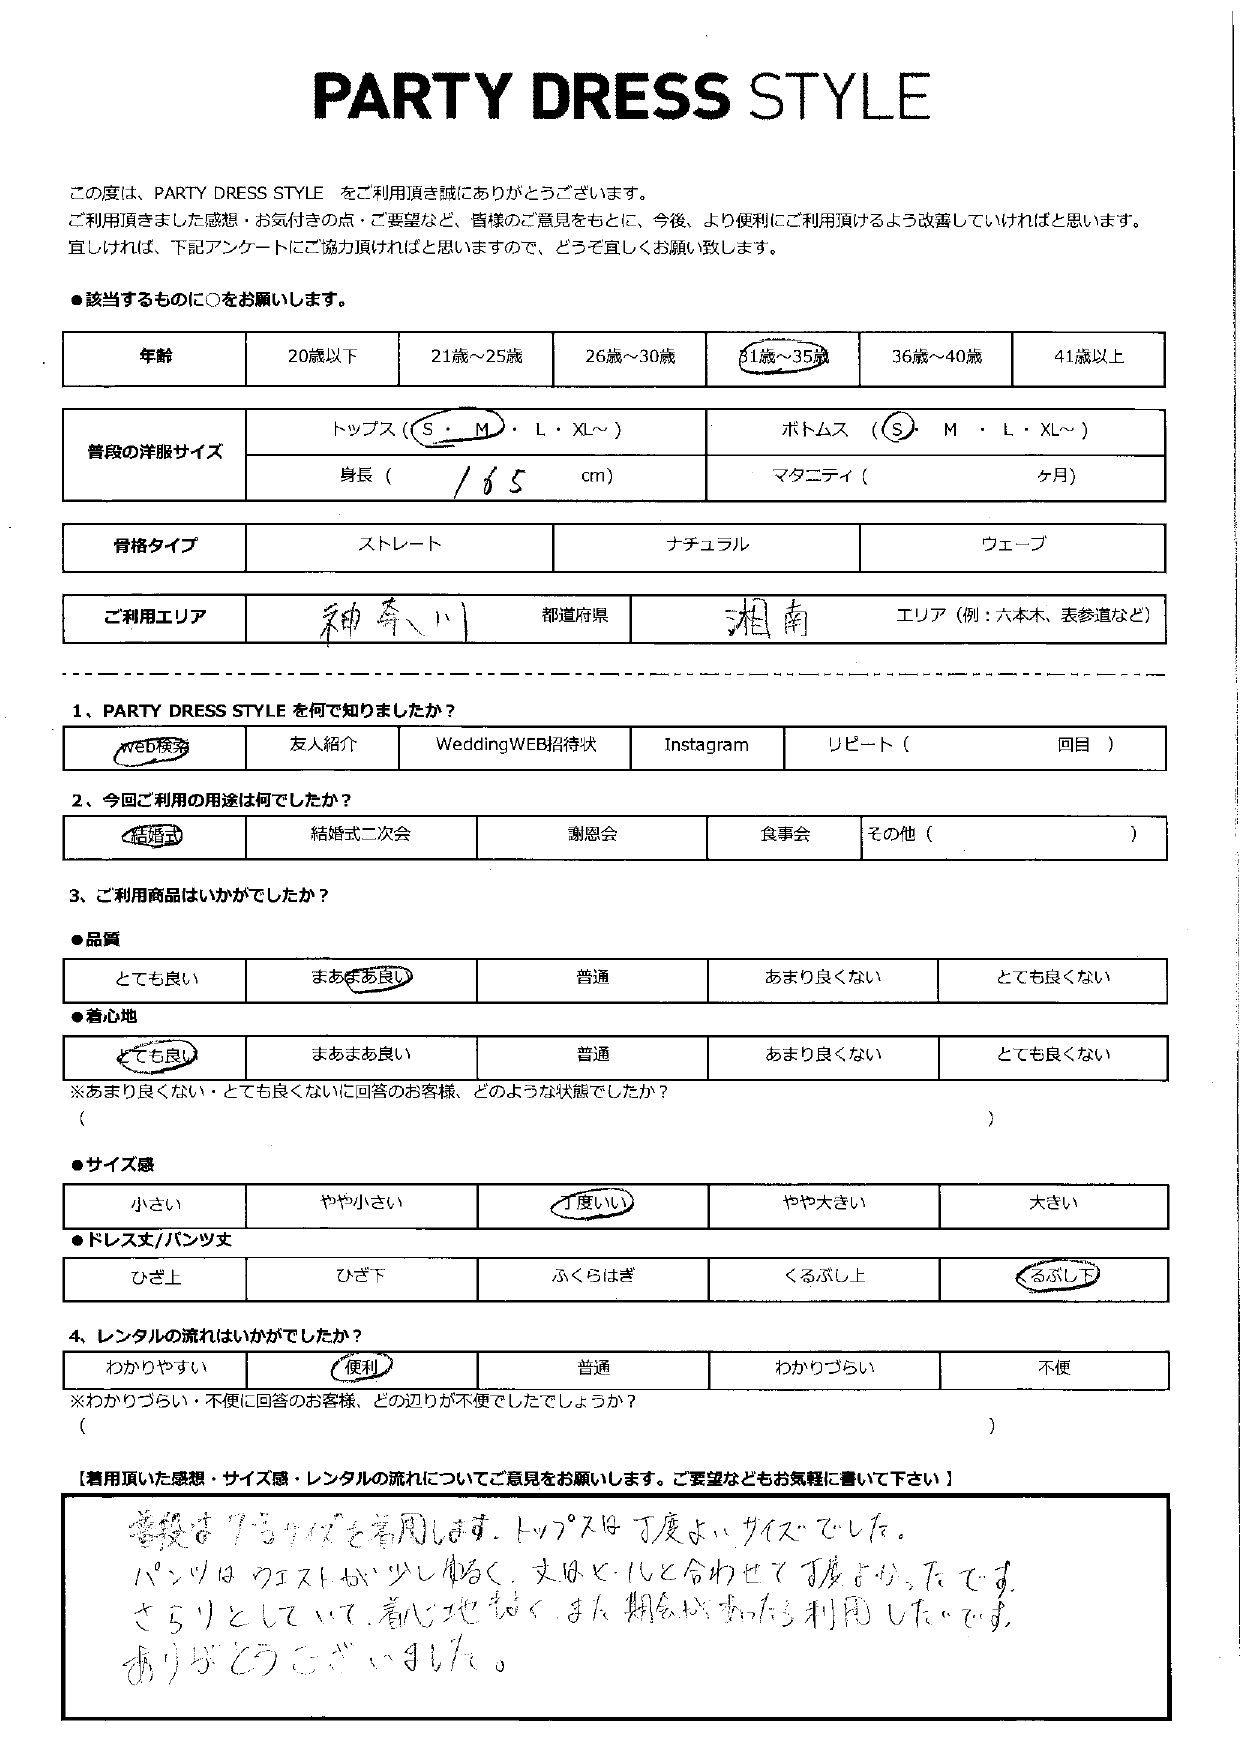 PARTY DRESS STYLE
この度は、PARTY DRESS STYLE をご利用頂き誠にありがとうございます。
ご利用頂きました感想・お気付きの点・ご要望など、皆様のご意見をもとに、今後、より便利にご利用頂けるよう改善していければと思います。
宜しければ、下記アンケートにご協力頂ければと思いますので、どうぞ宜しくお願い致します。
●該当するものに○をお願いします。
年齢 20歳以下 21歳～25歳 26歳～30歳 31歳～35歳 36歳～40歳 41歳以上
普段の洋服サイズ トップス (S・ M ・ L ・ XL～ ) ボトムス (S・ M ・ L ・ XL～ )
身長 ( 165 cm) マタニティ ( ヶ月)
骨格タイプ ストレート ナチュラル ウェーブ
ご利用エリア 神奈川 都道府県 湘南 エリア（例：六本木、表参道など）
1、PARTY DRESS STYLE を何で知りましたか？
web検索 友人紹介 WeddingWEB招待状 Instagram リピート ( 回目 )
2、今回ご利用の用途は何でしたか？
結婚式 結婚式二次会 謝恩会 食事会 その他 ( )
3、ご利用商品はいかがでしたか？
●品質
とても良い まあまあ良い 普通 あまり良くない とても良くない
●着心地
とても良い まあまあ良い 普通 あまり良くない とても良くない
※あまり良くない・とても良くないに回答のお客様、どのような状態でしたか？
( )
●サイズ感
小さい やや小さい 丁度いい やや大きい 大きい
●ドレス丈/パンツ丈
ひざ上 ひざ下 ふくらはぎ くるぶし上 くるぶし下
4、レンタルの流れはいかがでしたか？
わかりやすい 便利 普通 わかりづらい 不便
※わかりづらい・不便に回答のお客様、どの辺りが不便でしたでしょうか？
( )
【着用頂いた感想・サイズ感・レンタルの流れについてご意見をお願いします。ご要望などもお気軽に書いて下さい 】
普段は7号サイズを着用します。トップスは丁度よいサイズでした。
パンツはウエストが少しゆるく、丈はヒールと合わせて丁度よかったです。
さらりとしていて、着心地もよく、また機会があったら利用したいです。
ありがとうございました。